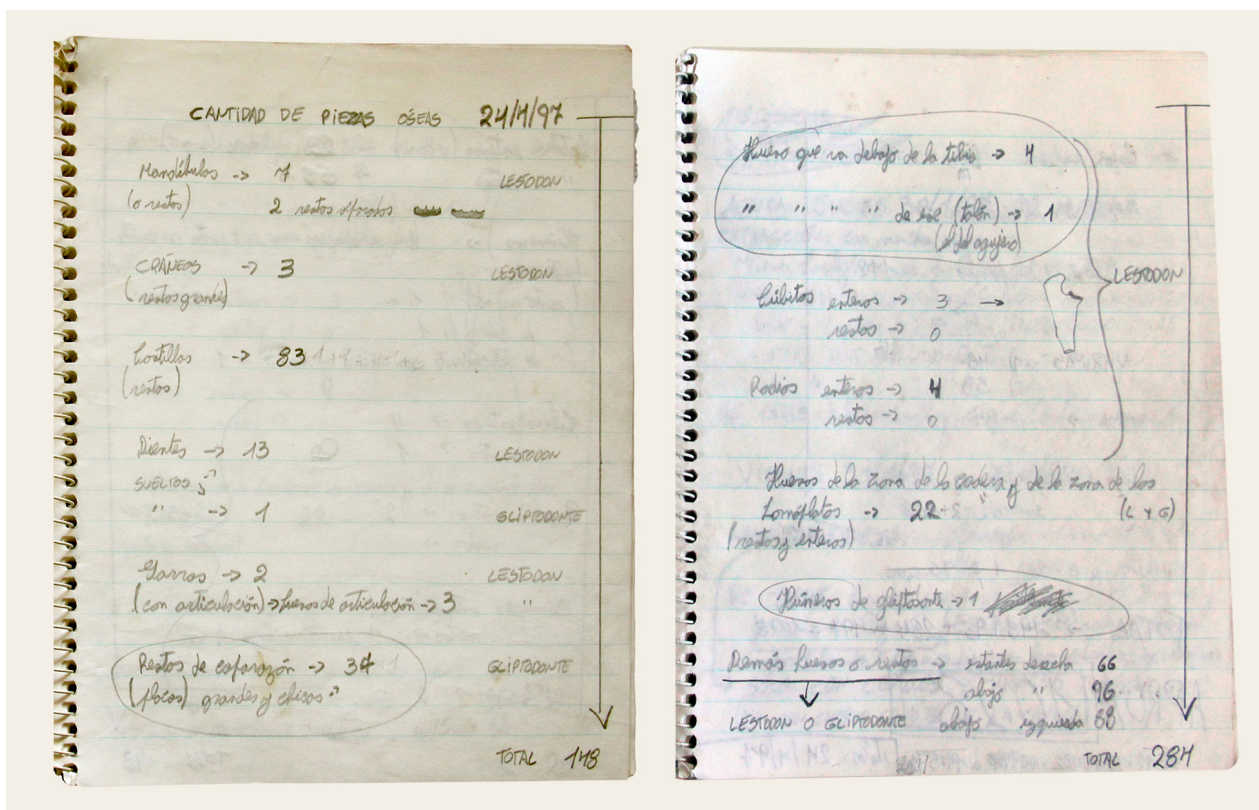 CANTIDAD DE PIEZAS ÓSEAS 24/4/97
Mandíbulas -> 7 LESTODON
(o restos) 2 restos
CRÁNEOS -> 3 LESTODON
(restos grandes)
Costillas -> 83
(restos)
Dientes -> 13 LESTODON
SUELTOS
" -> 1 GLIPTODONTE
Garras -> 2 LESTODON
(con articulación) -> huesos de articulación -> 3 "
Restos de caparazón -> GLIPTODONTE
(placas) grandes y chicos
TOTAL 148
Hueso que va debajo de la tibia -> 4
" " " " de ese (talón) -> 1
(el del agujero)
LESTODON
Cúbitos enteros -> 3 ->
restos -> 0
Radios enteros -> 4
restos -> 0
Huesos de la zona de la cadera y de la zona de los
Homóplatos -> 22 (L Y G)
(restos y enteros)
Húmeros de gliptodonte -> 1
Demás huesos o restos -> estantes derecha 66
abajo " 96
LESTODON O GLIPTODONTE abajo izquierda 88
TOTAL 284